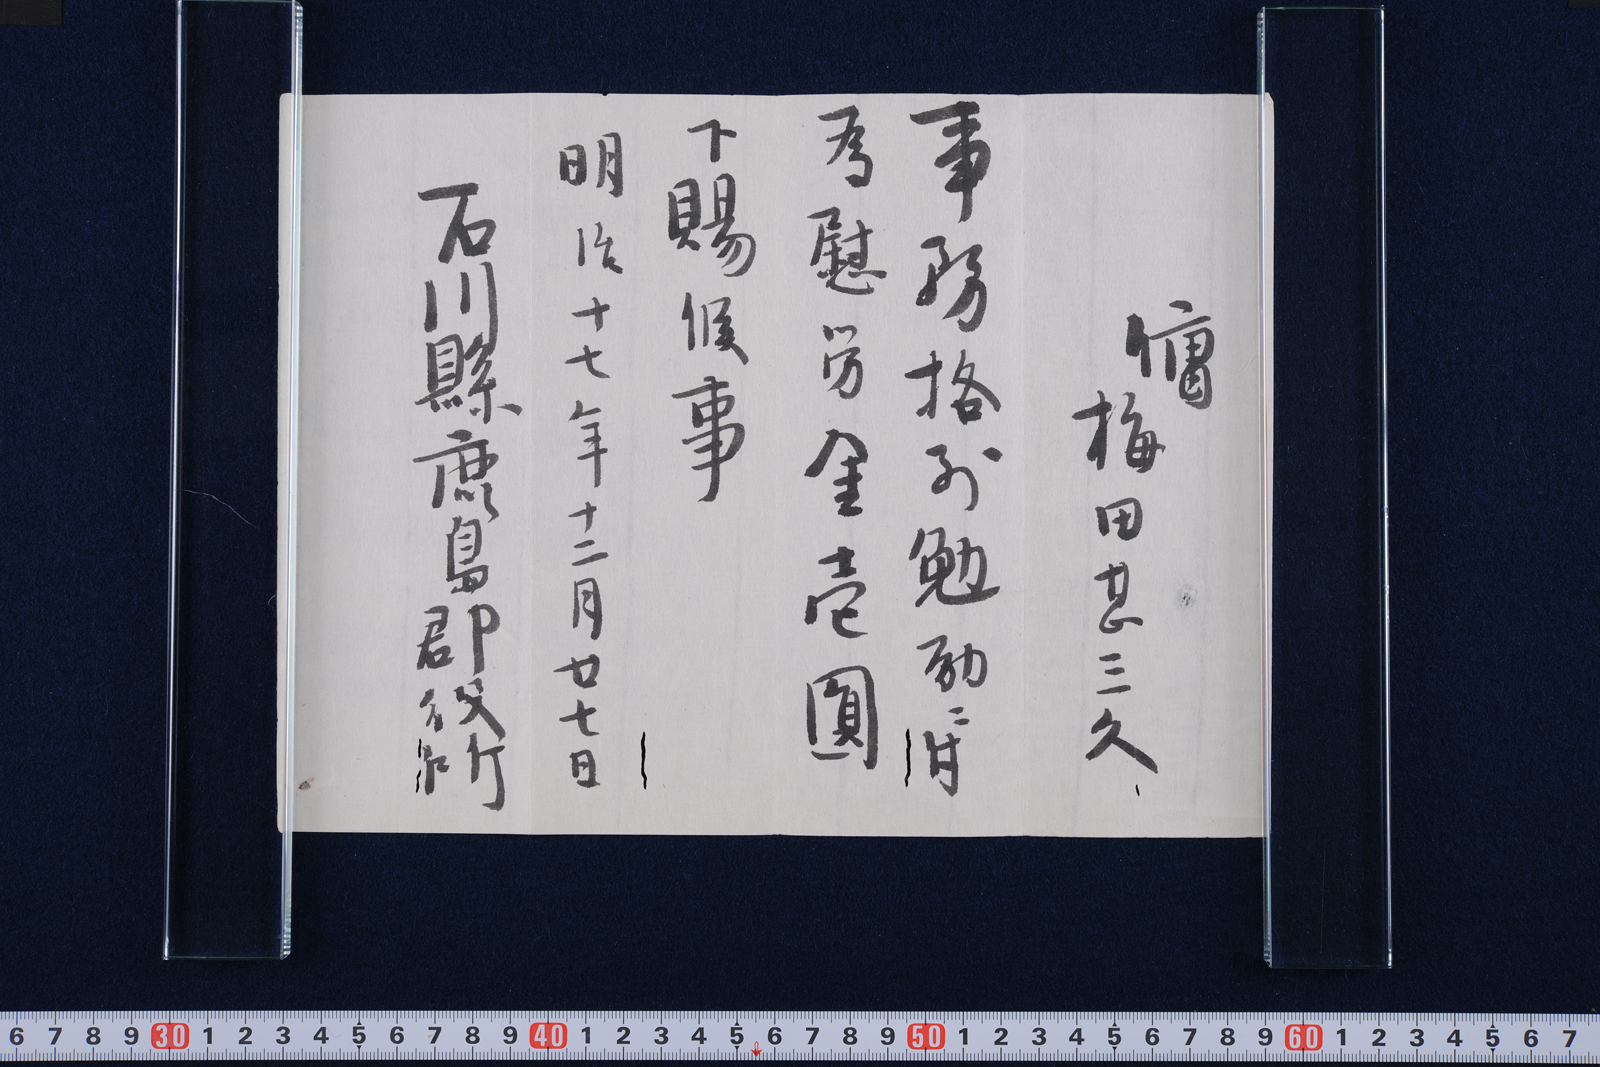 傭
梅田甚三久
事務格別勉励ニ付
為慰労金壱圓
下賜候事
明治十七年十二月廿七日
石川縣鹿島郡役所
6 7 8 9 30 1 2 3 4 5 6 7 8 9 40 1 2 3 4 5 6 7 8 9 50 1 2 3 4 5 6 7 8 9 60 1 2 3 4 5 6 7